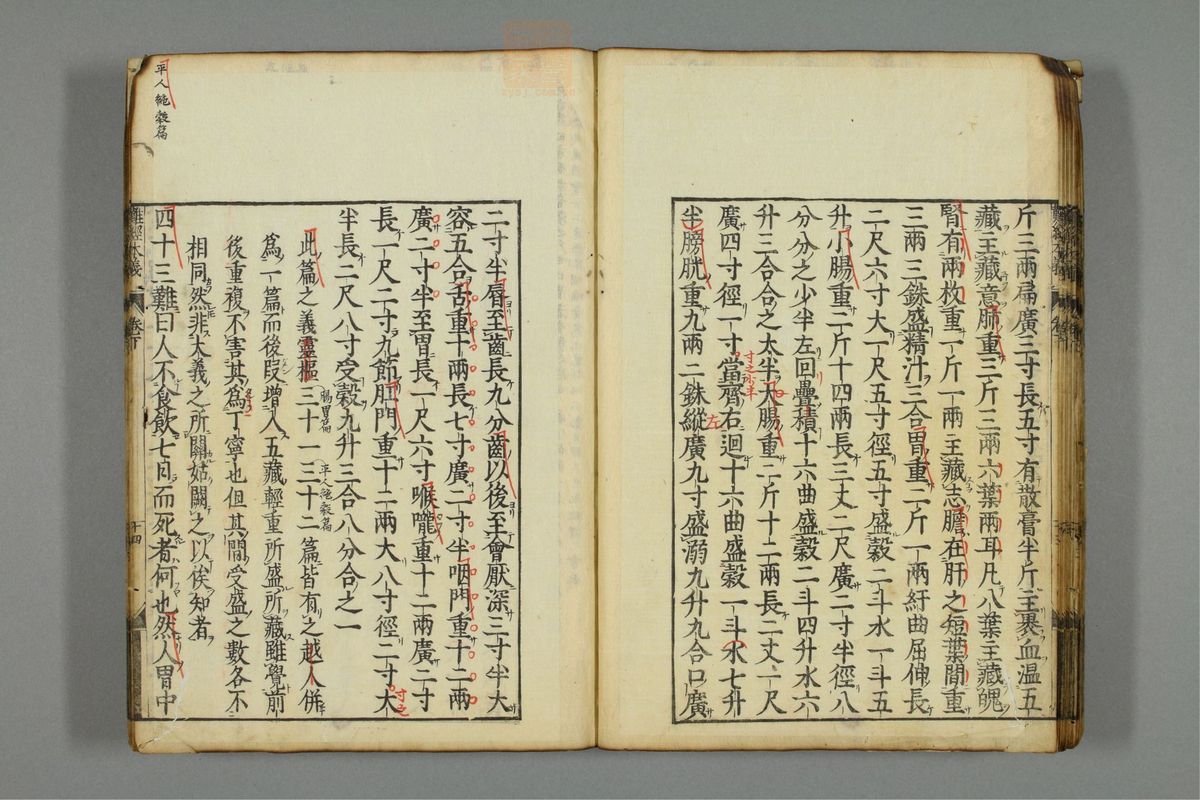 斤三兩扁廣三寸長五寸有散膏半斤主裹血溫五
藏主藏意肺重三斤三兩六葉兩耳凡八葉主藏魄
腎有兩枚重一斤一兩主藏志膽在肝之短葉間重
三兩三銖盛精汁三合胃重二斤一兩紆曲屈伸長
二尺六寸大一尺五寸徑五寸盛穀二斗水一斗五
升小腸重二斤十四兩長三丈二尺廣二寸半徑八
分分之少半左回疊積十六曲盛穀二斗四升水六
升三合合之太半大腸重二斤十二兩長二丈一尺
廣四寸徑一寸當齊右迴十六曲盛穀一斗水七升
寸之少半
左
半膀胱重九兩二銖縱廣九寸盛溺九升九合口廣
二寸半脣至齒長九分齒以後至會厭深三寸半大
容五合舌重十兩長七寸廣二寸半咽門重十二兩
廣二寸半至胃長一尺六寸喉嚨重十二兩廣二寸
長一尺二寸九節肛門重十二兩大八寸徑二寸大
寸之
半長二尺八寸受穀九升三合八分合之一
此篇之義靈樞三十一腸胃篇三十二平人絶穀篇篇皆有之越人併
爲一篇而後段增入五藏輕重所盛所藏雖覺前
後重複不害其爲丁寧也但其間受盛之數各不
相同然非大義之所關姑闕之以俟知者
四十三難曰人不食飲七日而死者何也然人胃中
平人絶穀篇
難經本義
卷下
十四